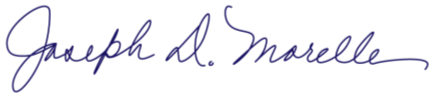 Joseph D. Morelle